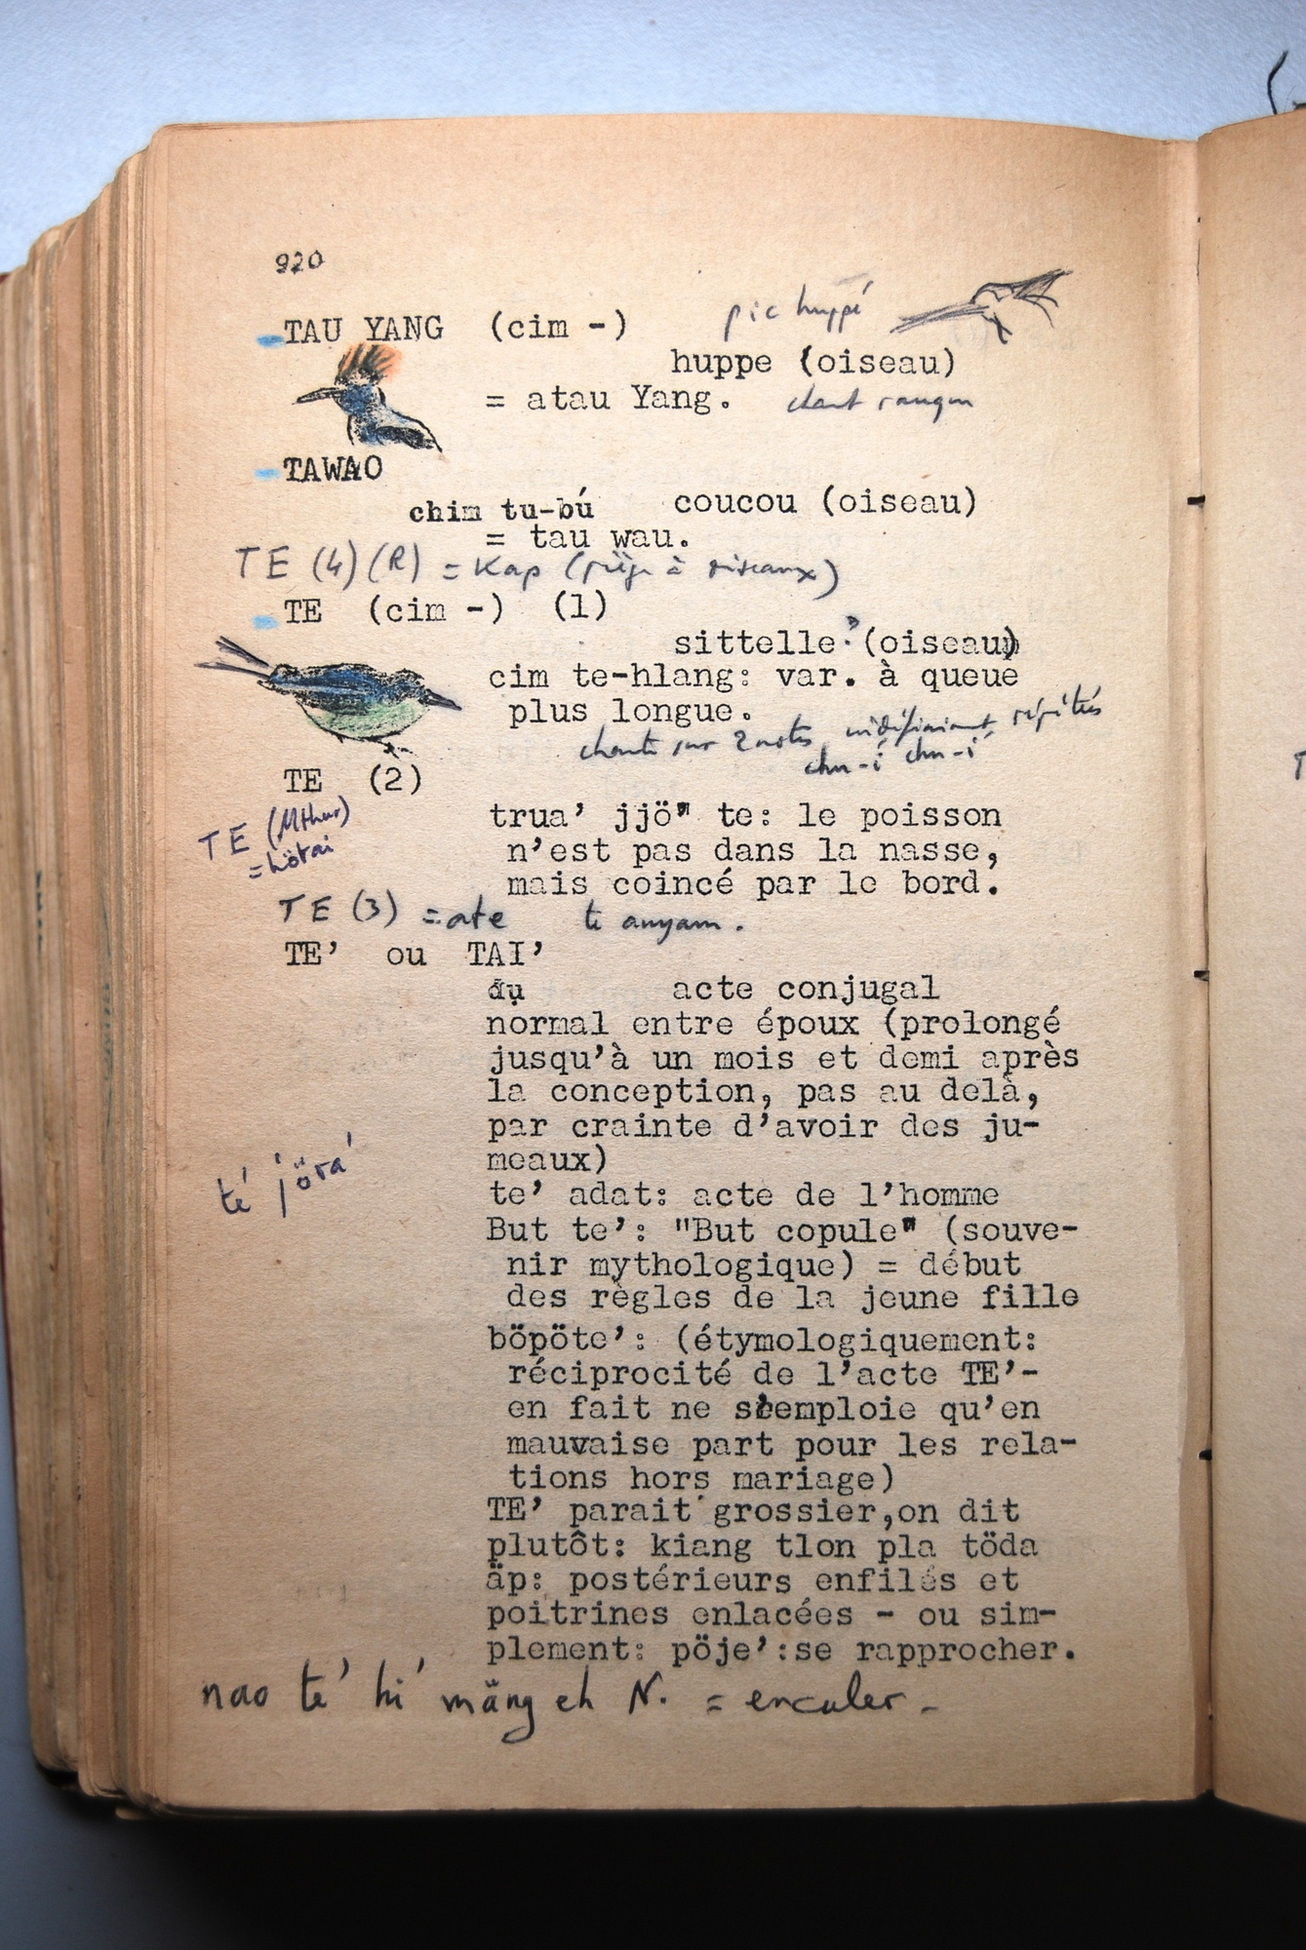 920
TAU YANG (cim -) pic huppé
huppe (oiseau)
= atau Yang.
TAWAO
chim tu-bú coucou (oiseau)
= tau wau.
TE (4) (R) = Kap (piège à oiseaux)
TE (cim -) (1)
sittelle (oiseau)
cim te-hlang: var. à queue
plus longue.
chante sur 2 notes, indéfiniment répétées
chu-i chu-i
TE (2)
trua' jjö" te: le poisson
n'est pas dans la nasse,
mais coincé par le bord.
TE (Mthur)
= hötai
TE (3) = ate te anyam.
TE' ou TAI'
đụ acte conjugal
normal entre époux (prolongé
jusqu'à un mois et demi après
la conception, pas au delà,
par crainte d'avoir des ju-
meaux)
té' jörá
te' adat: acte de l'homme
But te': "But copule" (souve-
nir mythologique) = début
des règles de la jeune fille
böpöte': (étymologiquement:
réciprocité de l'acte TE'-
en fait ne s'emploie qu'en
mauvaise part pour les rela-
tions hors mariage)
TE' parait grossier,on dit
plutôt: kiang tlon pla töda
äp: postérieurs enfilés et
poitrines enlacées - ou sim-
plement: pöje':se rapprocher.
nao te' hi' mäng eh N. = enculer -